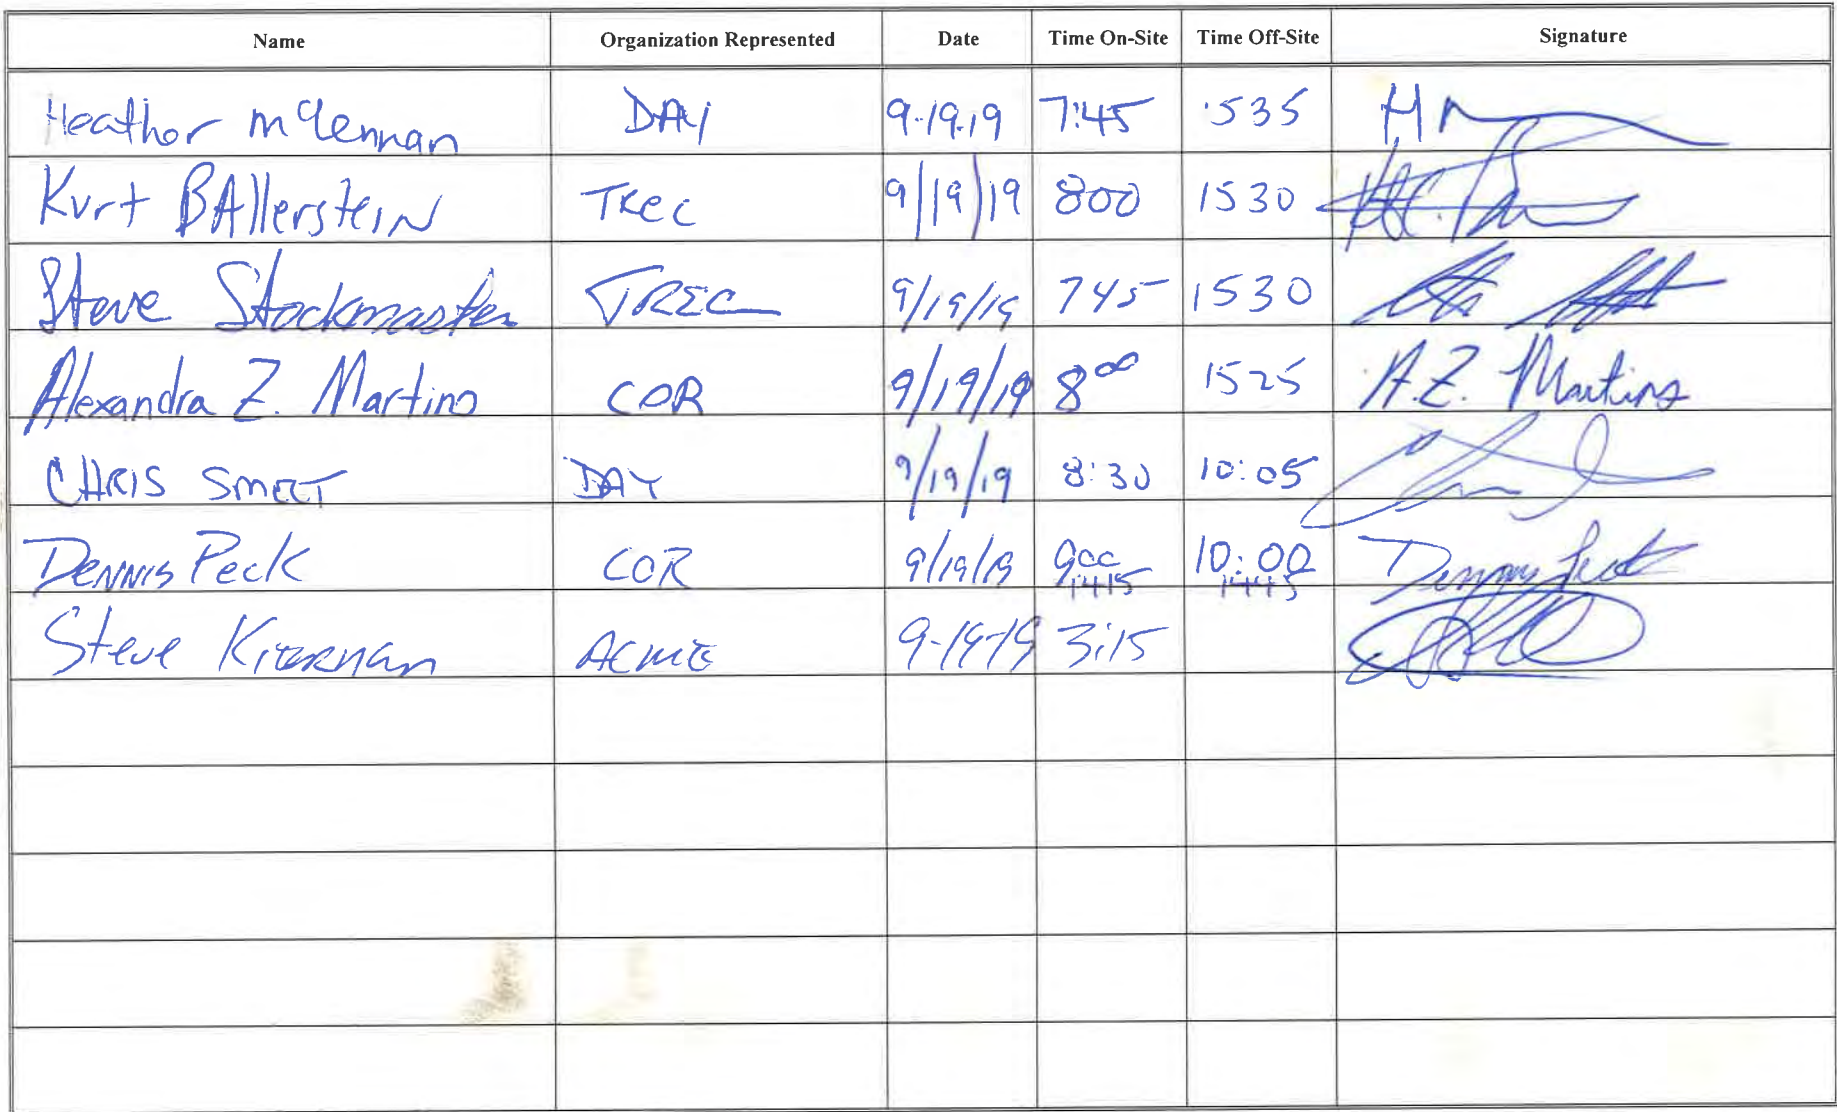 Name Organization Represented Date Time On-Site Time Off-Site Signature
Heather McLennan DAY 9.19.19 7:45 1535 H
Kurt BAllersteIN TREC 9/19/19 800 1530
Steve Stockmaster TREC 9/19/19 745 1530
Alexandra Z. Martino COR 9/19/19 8 00 1525 A.Z. Martino
CHRIS SMEET DAY 9/19/19 8:30 10:05
DENNIS Peck COR 9/19/19 900 10:00 Dennis Peck
1415 1445
Steve Kiernan ACME 9-19-19 3:15